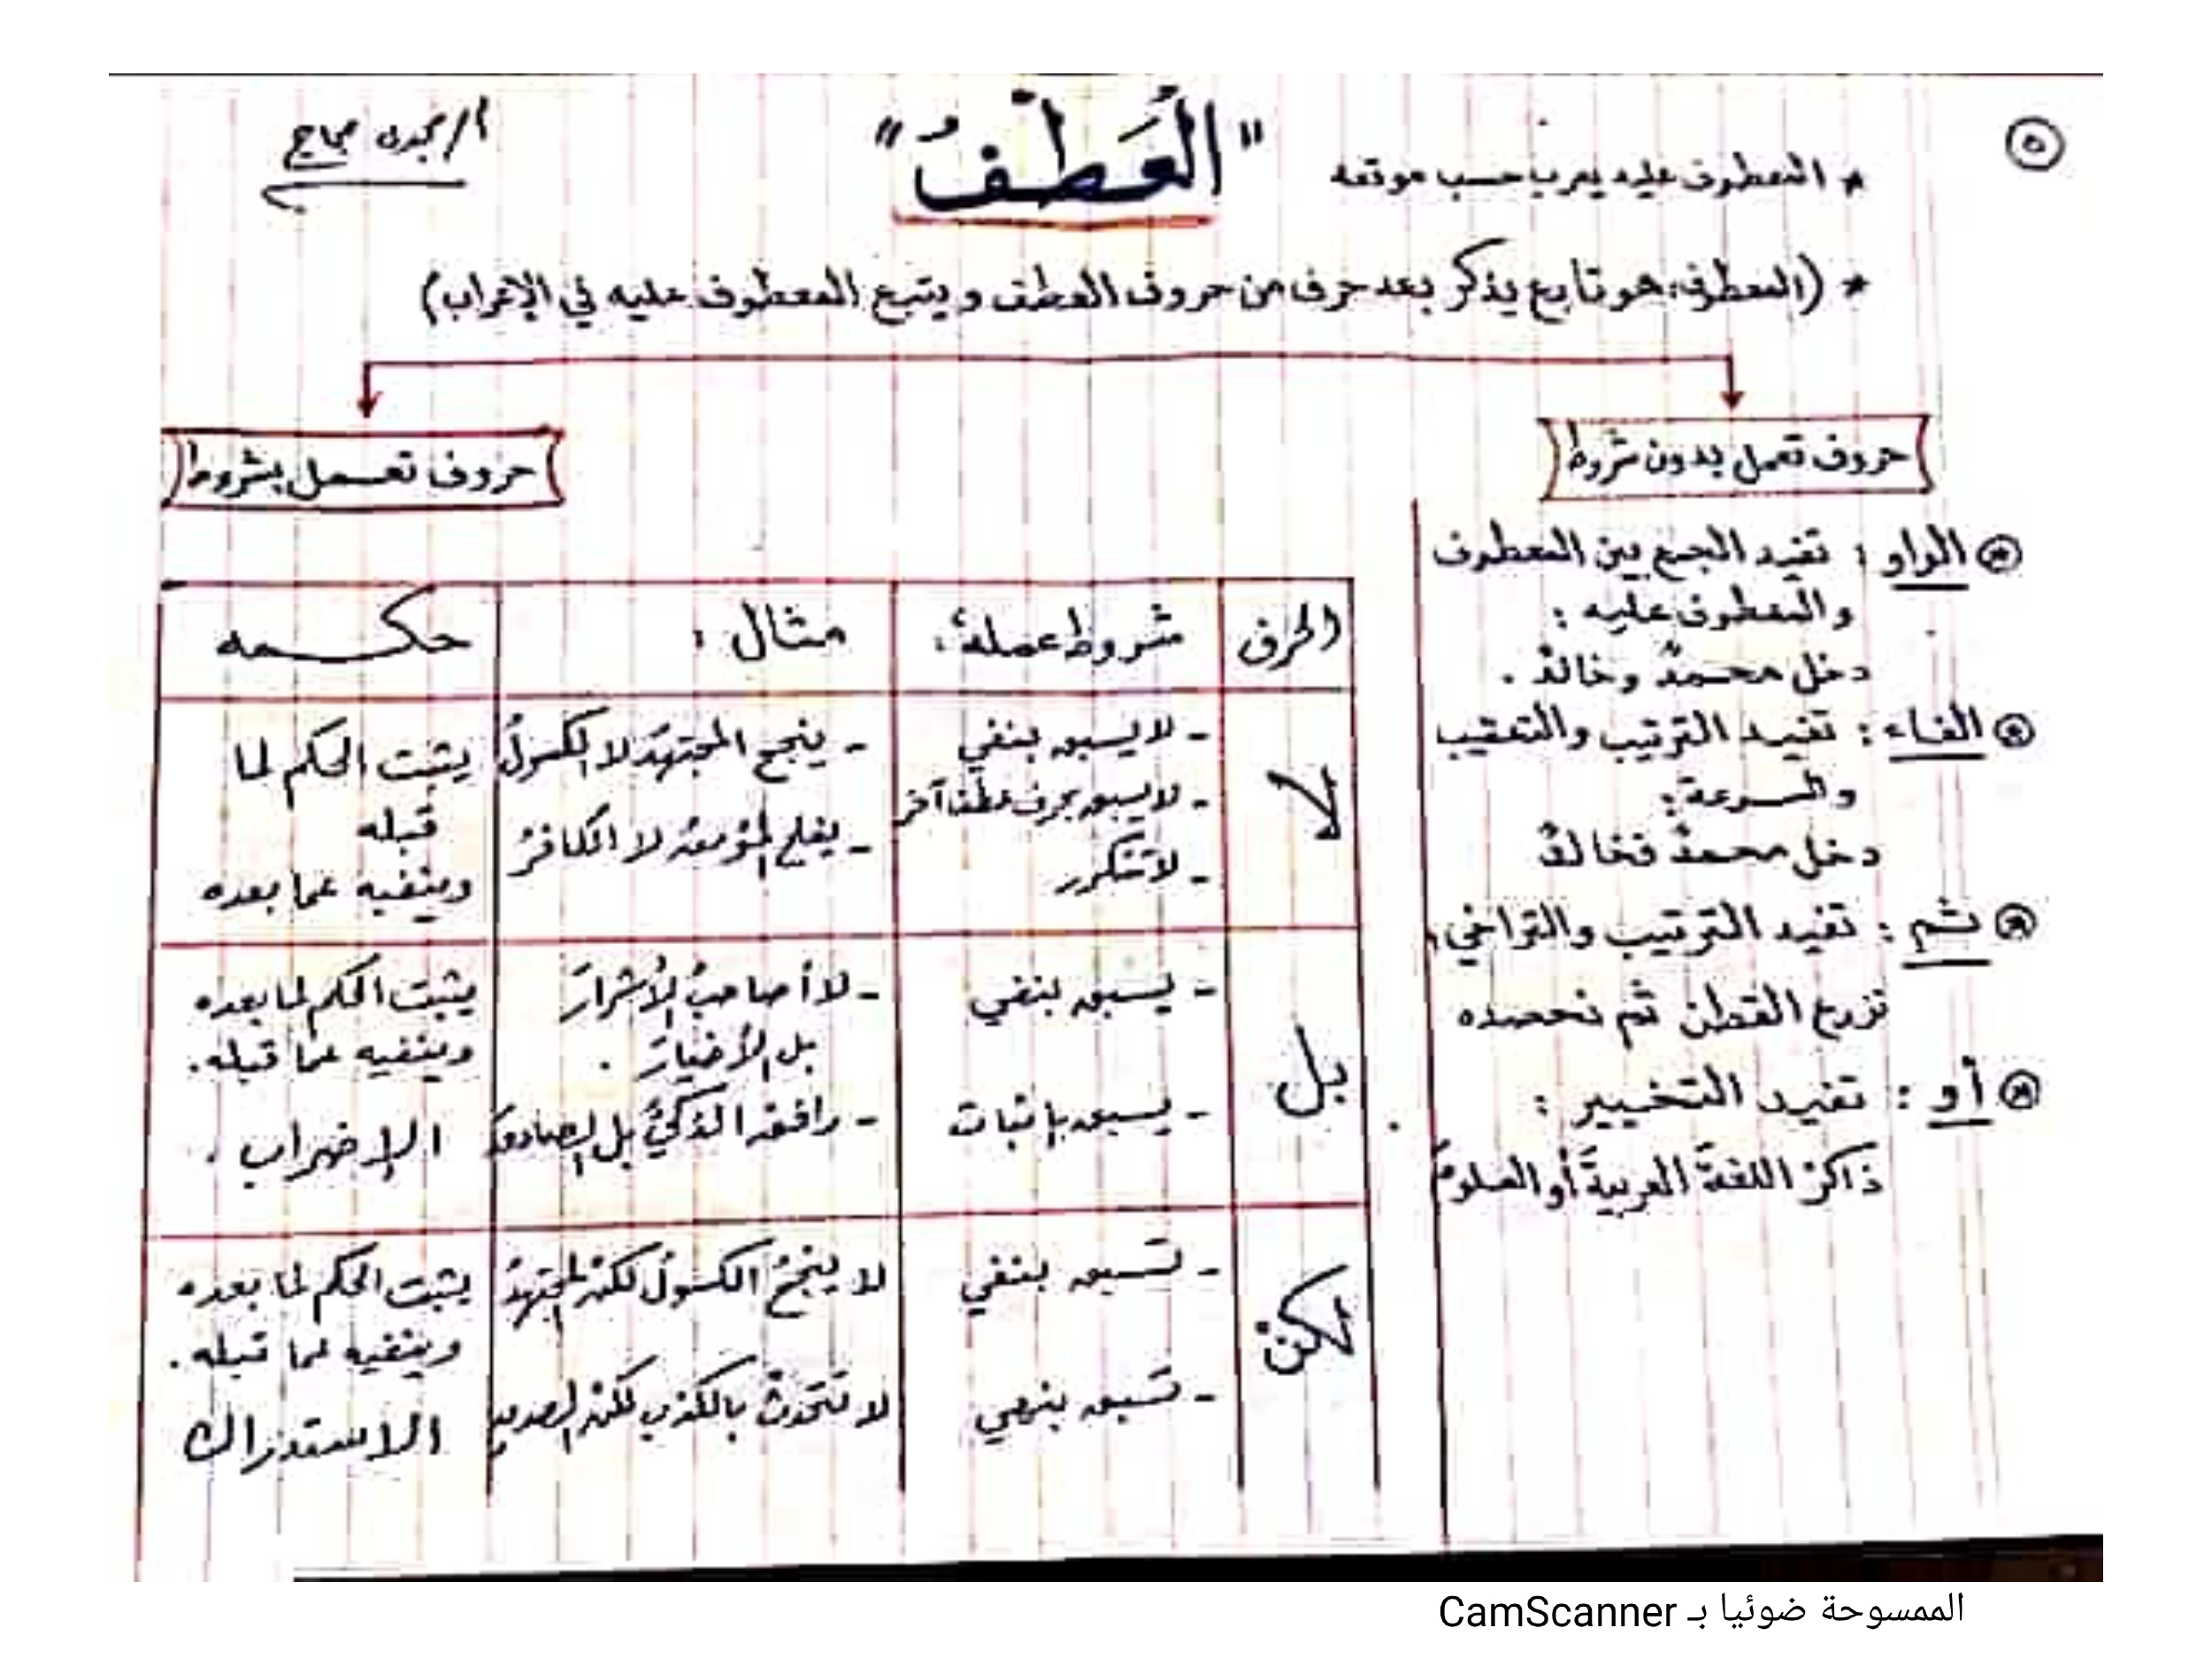 ٥
* المعطوف عليه يعرب حسب موقعه
"العَطْفُ"
أ/ مجدى
* (المعطوف: هو تابع يذكر بعد حرف من حروف العطف ويتبع المعطوف عليه في الإعراب)
حروف تعمل بدون شروط
الواو : تفيد الجمع بين المعطوف
والمعطوف عليه :
دخل محمدٌ وخالدٌ .
الفاء : تفيد الترتيب والتعقيب
والسرعة :
دخل محمدٌ فخالدٌ
ثم : تفيد الترتيب والتراخي
نزرع القطن ثم نحصده
أو : تفيد التخيير :
ذاكرْ اللغةَ العربيةَ أو العلومَ
حروف تعمل بشروط
الحرف
شروط عمله :
مثال :
حكمه
لا
- لا يسبق بنفي
- لا يسبق بحرف عطف آخر
- لا تتكرر
- ينجح المجتهدُ لا الكسولُ
- يفلح المؤمنُ لا الكافرُ
يثبت الحكم لما
قبله
وينفيه عما بعده
بل
- يسبق بنفي
- يسبق بإثبات
- لا أصاحبُ الأشرارَ
بل الأخيارَ .
- رافق الذكيَّ بل الصادقَ
يثبت الحكم لما بعده
وينفيه عما قبله .
الإضراب .
لكنْ
- تسبق بنفي
- تسبق بنهي
لا ينجحُ الكسولُ لكنْ المجتهدُ
لا تتحدثْ بالكذبِ لكنْ الصدقِ
يثبت الحكم لما بعده
وينفيه لما قبله .
الاستدراك
الممسوحة ضوئيا بـ CamScanner